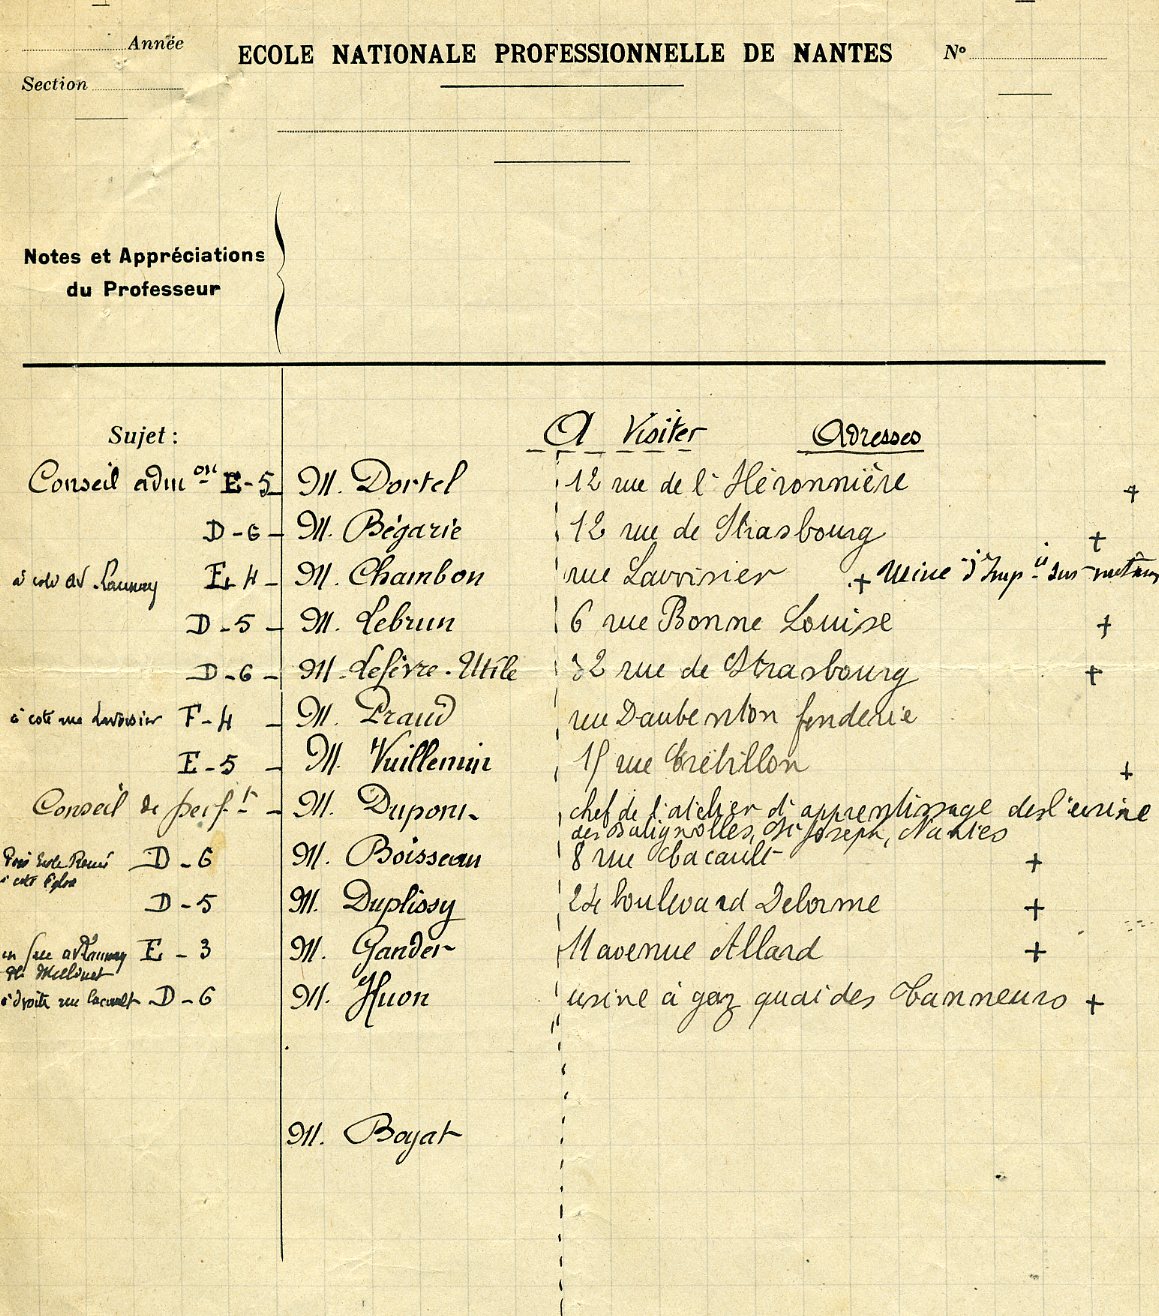 Année
ECOLE NATIONALE PROFESSIONNELLE DE NANTES
N°
Section
Notes et Appréciations
du Professeur
Sujet :
A Visiter Adresses
Conseil adm on E-5 - M. Dortel 12 rue de l'Héronnière +
D-6 - M. Bégarie 12 rue de Strasbourg +
à coté av. Launay E-4 - M. Chambon rue Lavoisier + Usine d'Imp. sur métaux
D-5 - M. Lebrun 6 rue Bonne Louise +
D-6 - M. Lefèvre-Utile 32 rue de Strasbourg +
à coté rue Lavoisier F-4 - M. Praud rue Daubenton fonderie
E-5 - M. Vuillemin 15 rue Crébillon +
Conseil de perf t - M. Dupont - chef de l'atelier d'apprentissage de l'usine
des Batignolles, St Joseph, Nantes
D-6 M. Boisseau 8 rue Cacault +
à coté Eglise
D-5 M. Duplissy 24 boulevard Delorme +
en face av Launay E-3 M. Gander 11 avenue Allard +
Pl. Mellinet
à droite rue Cacault D-6 M. Huon usine à gaz quai des Tanneurs +
M. Boyat